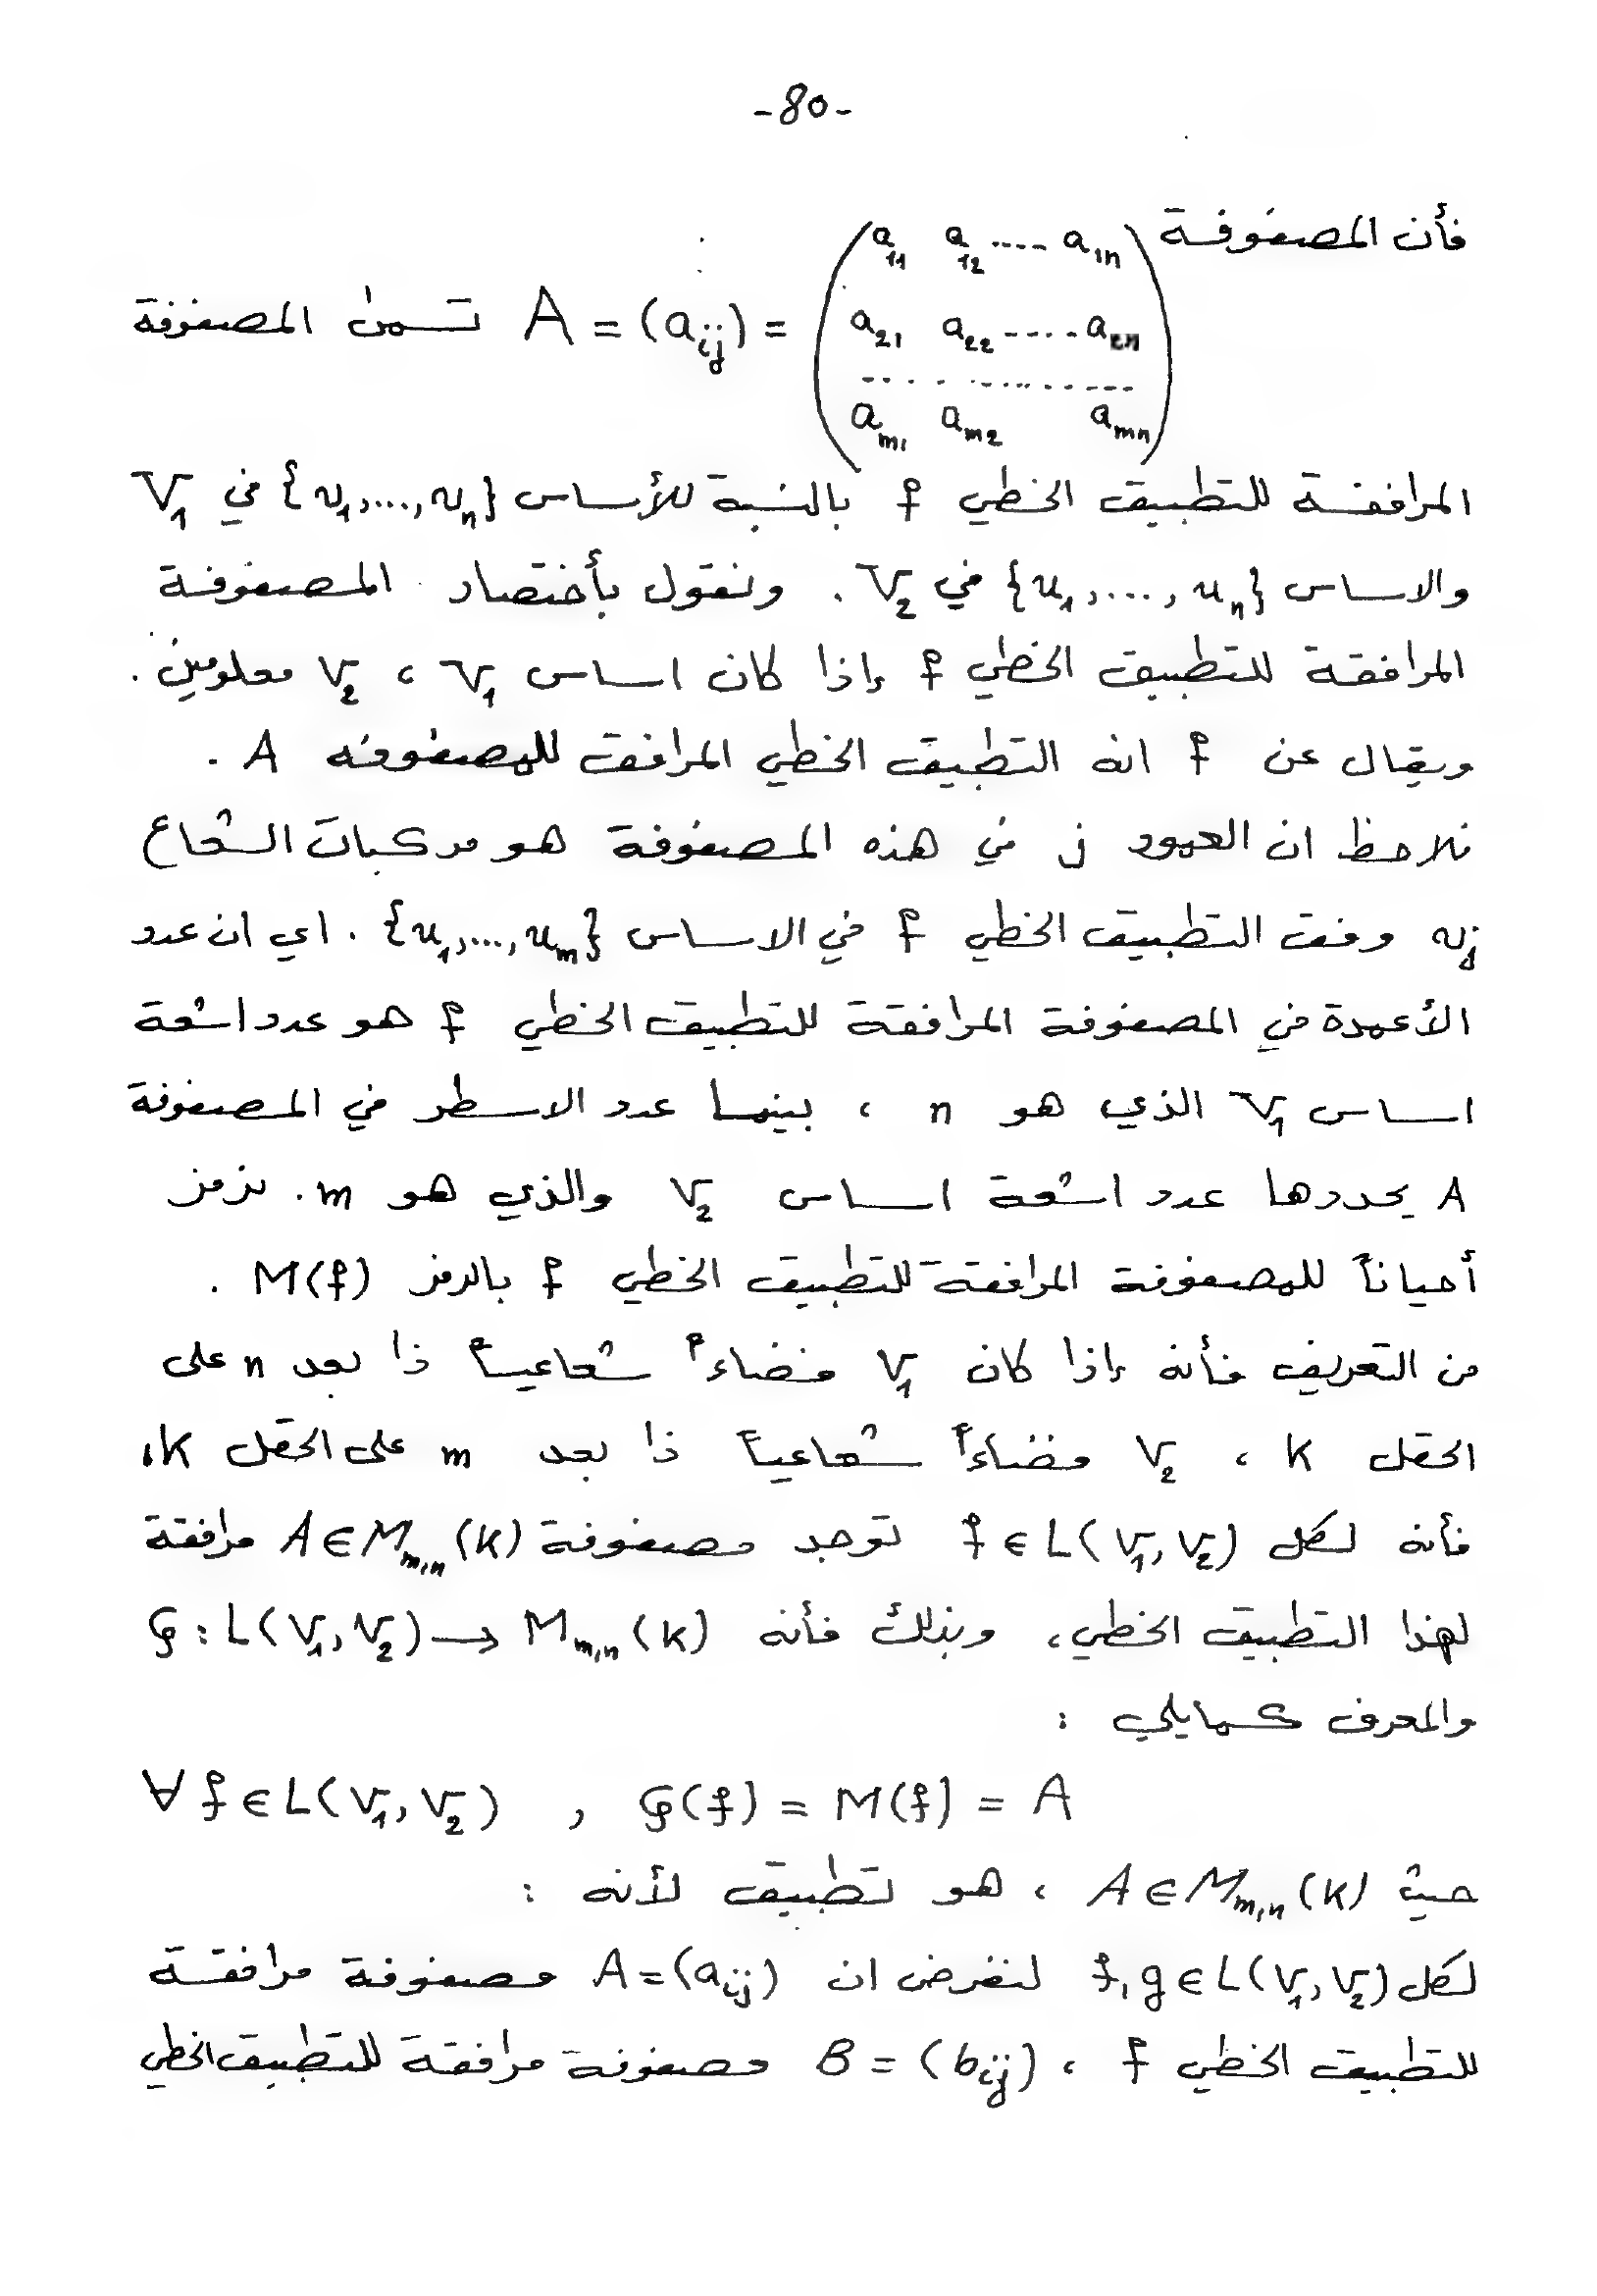 -80-
فأن المصفوفة
A = (a_ij) = ( a_11 a_12 .... a_1n
a_21 a_22 ..... a_2n
.................
a_m1 a_m2 a_mn ) تسمى المصفوفة
المرافقة للتطبيق الخطي f بالنسبة للأساس {v_1,...,v_n} في V_1
والاساس {u_1,...,u_n} في V_2 . ونقول بأختصار المصفوفة
المرافقة للتطبيق الخطي f إذا كان اساس V_1 ، V_2 معلومين .
ويقال عن f انه التطبيق الخطي المرافق للمصفوفه A .
نلاحظ ان العمود j في هذه المصفوفة هو مركبات الشعاع
v_j وفق التطبيق الخطي f في الاساس {u_1,...,u_m} . اي ان عدد
الأعمدة في المصفوفة المرافقة للتطبيق الخطي f هو عدد اشعة
اساس V_1 الذي هو n ، بينما عدد الاسطر في المصفوفة
A يحددها عدد اشعة اساس V_2 والذي هو m . نرمز
أحياناً للمصفوفة المرافقة للتطبيق الخطي f بالرمز M(f) .
من التعريف فأنه إذا كان V_1 فضاءً شعاعياً ذا بعد n على
الحقل K ، V_2 فضاءاً شعاعياً ذا بعد m على الحقل K ،
فأنه لكل f ∈ L(V_1, V_2) توجد مصفوفة A ∈ M_m,n (K) مرافقة
لهذا التطبيق الخطي، وبذلك فأنه φ : L(V_1, V_2) → M_m,n (K)
والمعرف كمايلي :
∀ f ∈ L(V_1, V_2) , φ(f) = M(f) = A
حيث A ∈ M_m,n (K) ، هو تطبيق لأنه :
لكل f, g ∈ L(V_1, V_2) لنفرض ان A = (a_ij) مصفوفة مرافقة
للتطبيق الخطي f ، B = (b_ij) مصفوفة مرافقة للتطبيق الخطي